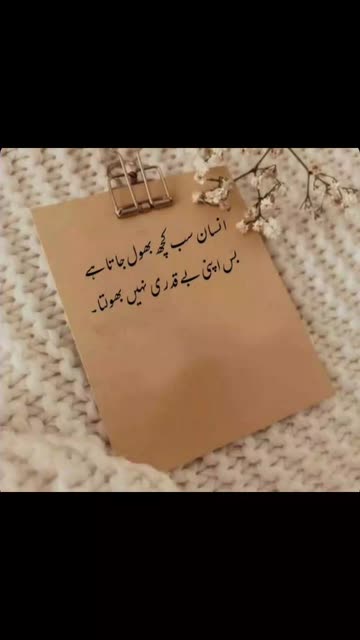 انسان سب کچھ بھول جاتا ہے
بس اپنی بے قدری نہیں بھولتا۔